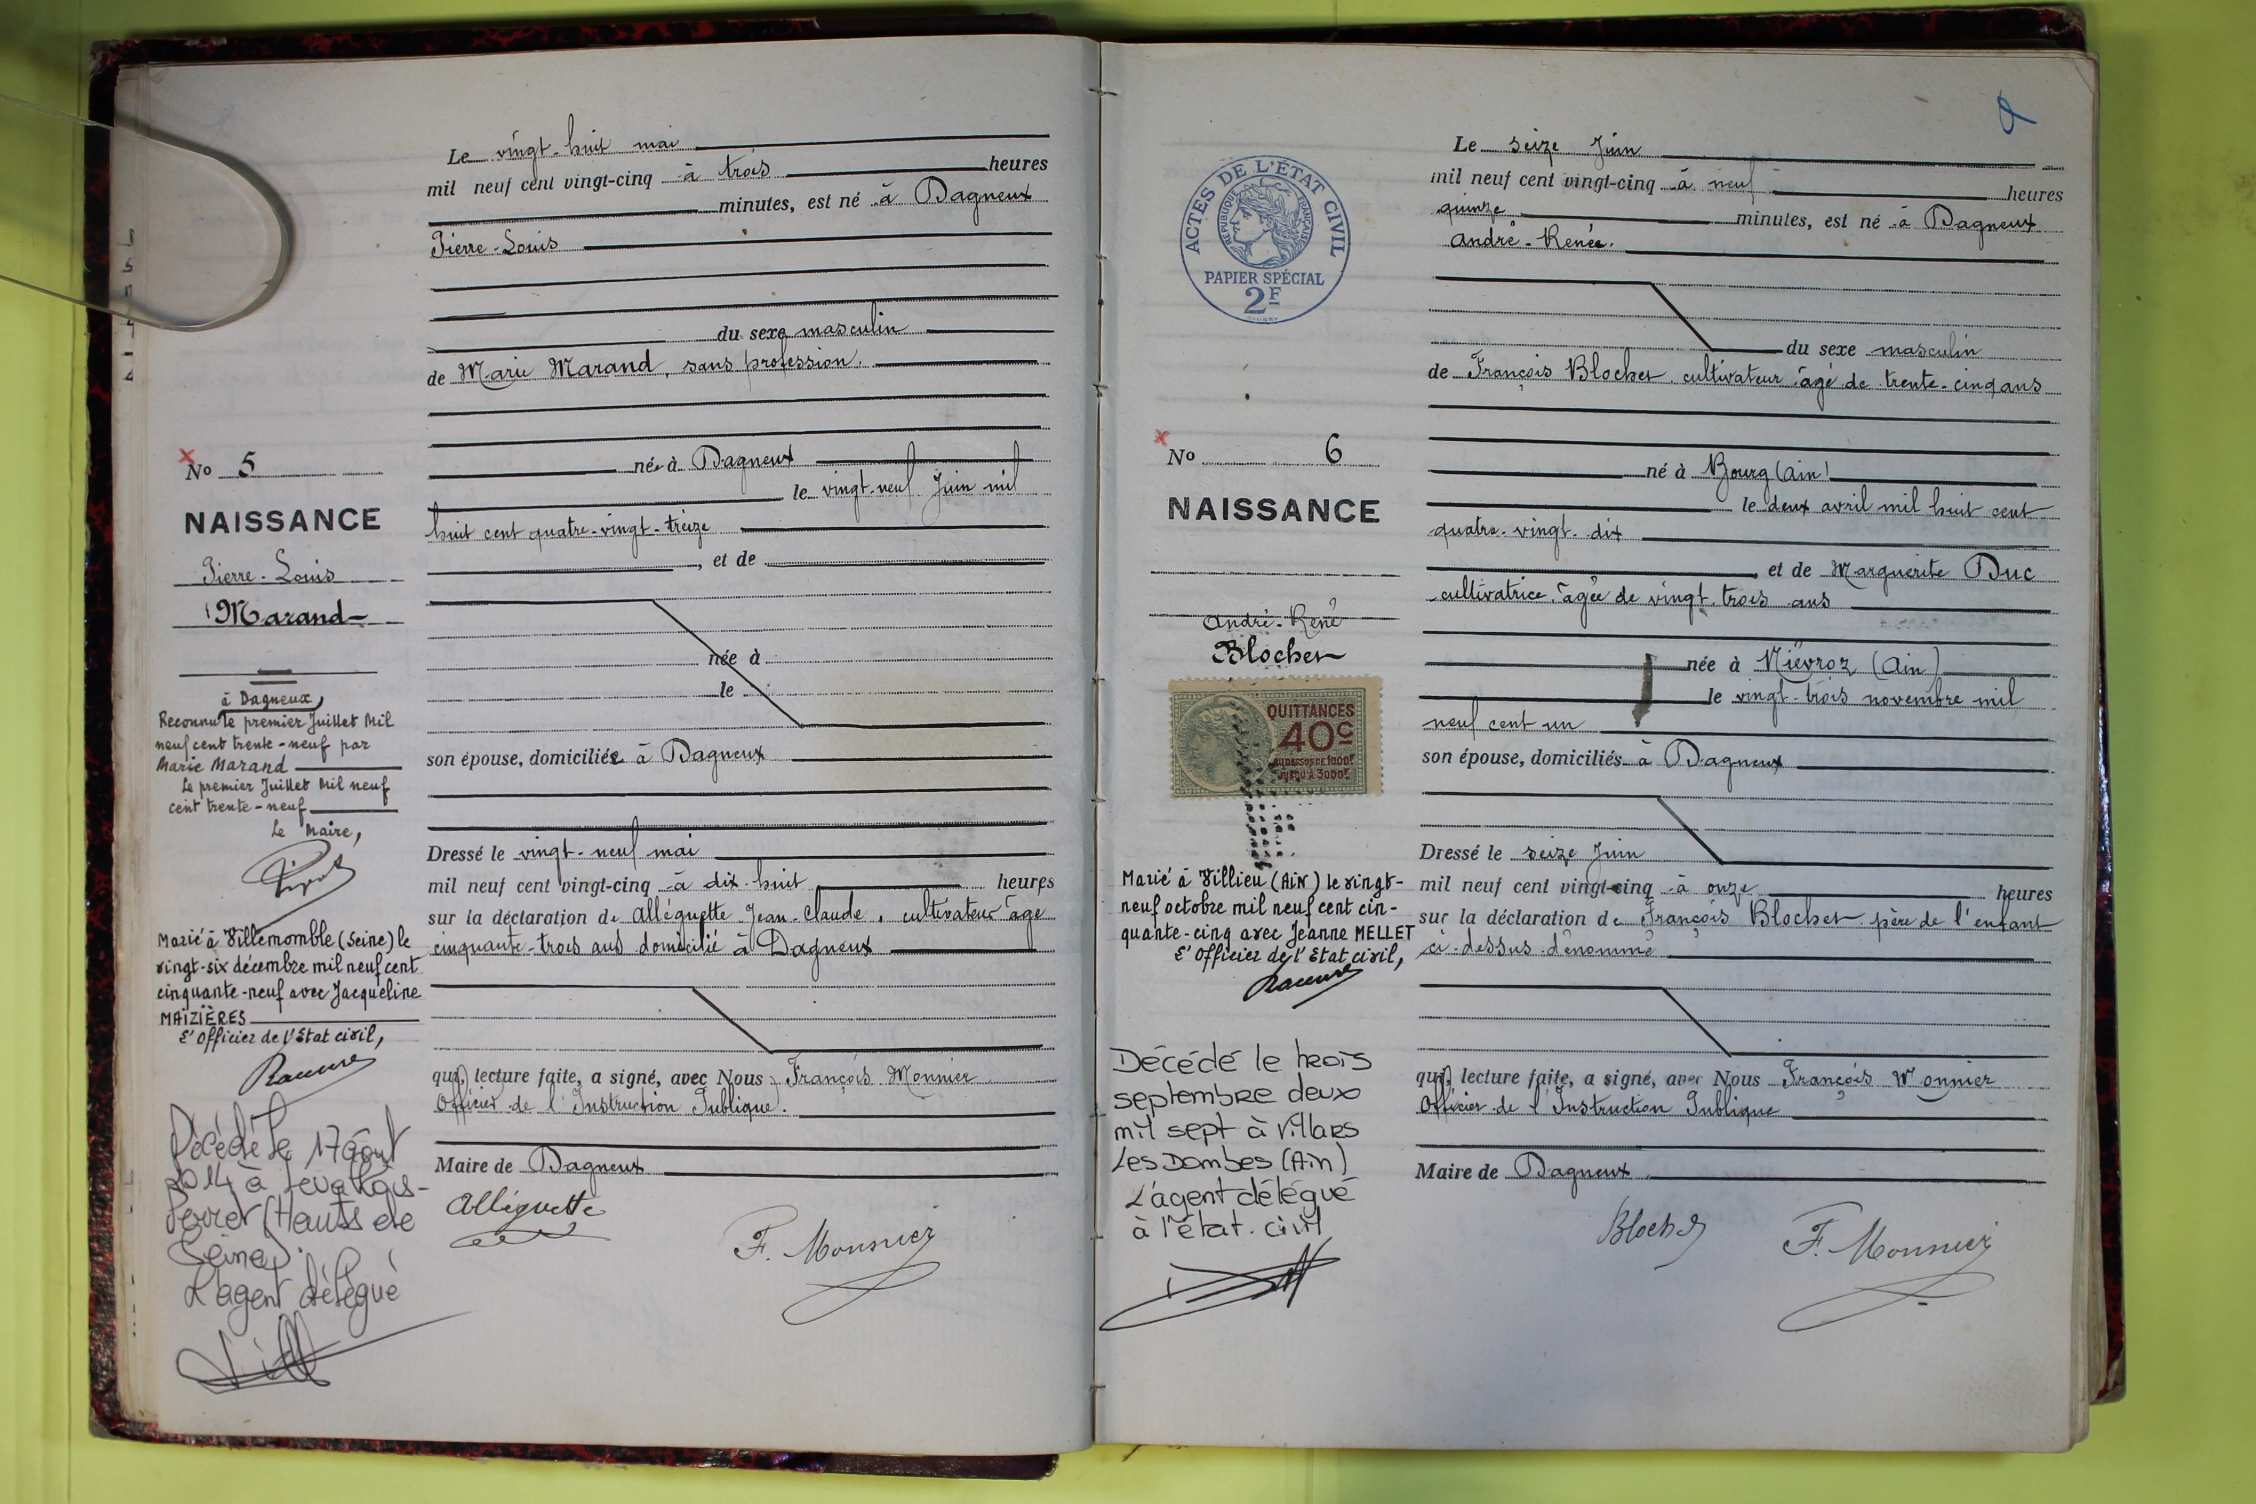 Le vingt-huit mai
mil neuf cent vingt-cinq à trois heures
minutes, est né à Dagneux
Pierre-Louis
du sexe masculin
de Marie Marand, sans profession.
née à Dagneux
le vingt-neuf Juin mil
huit cent quatre-vingt-treize
, et de
née à
le
son épouse, domiciliée à Dagneux
Dressé le vingt-neuf mai
mil neuf cent vingt-cinq à dix-huit heures
sur la déclaration de Alléguette Jean-Claude, cultivateur âgé
cinquante-trois ans domicilié à Dagneux
qui, lecture faite, a signé, avec Nous François Monnier
Officier de l'Instruction Publique.
Maire de Dagneux
Alléguette
F. Monnier
No 5
NAISSANCE
Pierre-Louis
Marand
à Dagneux
Reconnu le premier Juillet Mil
neuf cent trente-neuf par
Marie Marand
Le premier Juillet Mil neuf
cent trente-neuf
Le Maire,
Marié à Villemomble (Seine) le
vingt-six décembre mil neuf cent
cinquante-neuf avec Jacqueline
MAÏZIÈRES
L'Officier de l'Etat civil,
Décédé le 17 août
2014 à Levallois-
Perret (Hauts de
Seine).
L'agent délégué
Le seize Juin
mil neuf cent vingt-cinq à neuf heures
quinze minutes, est né à Dagneux
André-Renée.
du sexe masculin
de François Blocher cultivateur âgé de trente-cinq ans
né à Bourg (Ain)
le deux avril mil huit cent
quatre-vingt-dix
et de Marguerite Duc
cultivatrice âgée de vingt-trois ans
née à Niévroz (Ain)
le vingt-trois novembre mil
neuf cent un
son épouse, domiciliés à Dagneux
Dressé le seize Juin
mil neuf cent vingt-cinq à onze heures
sur la déclaration de François Blocher père de l'enfant
ci-dessus dénommé
qui, lecture faite, a signé, avec Nous François Monnier
Officier de l'Instruction Publique
Maire de Dagneux
Blocher
F. Monnier
ACTES DE L'ÉTAT CIVIL
RÉPUBLIQUE FRANÇAISE
PAPIER SPÉCIAL
2F
No 6
NAISSANCE
André-René
Blocher
QUITTANCES
40c
AU DESSUS DE 1000F
JUSQU'À 3000F
Marié à Villieu (Ain) le vingt-
neuf octobre mil neuf cent cin-
quante-cinq avec Jeanne MELLET
L'Officier de l'Etat civil,
Décédé le trois
septembre deux
mil sept à Villars
Les Dombes (Ain)
L'agent délégué
à l'état-civil